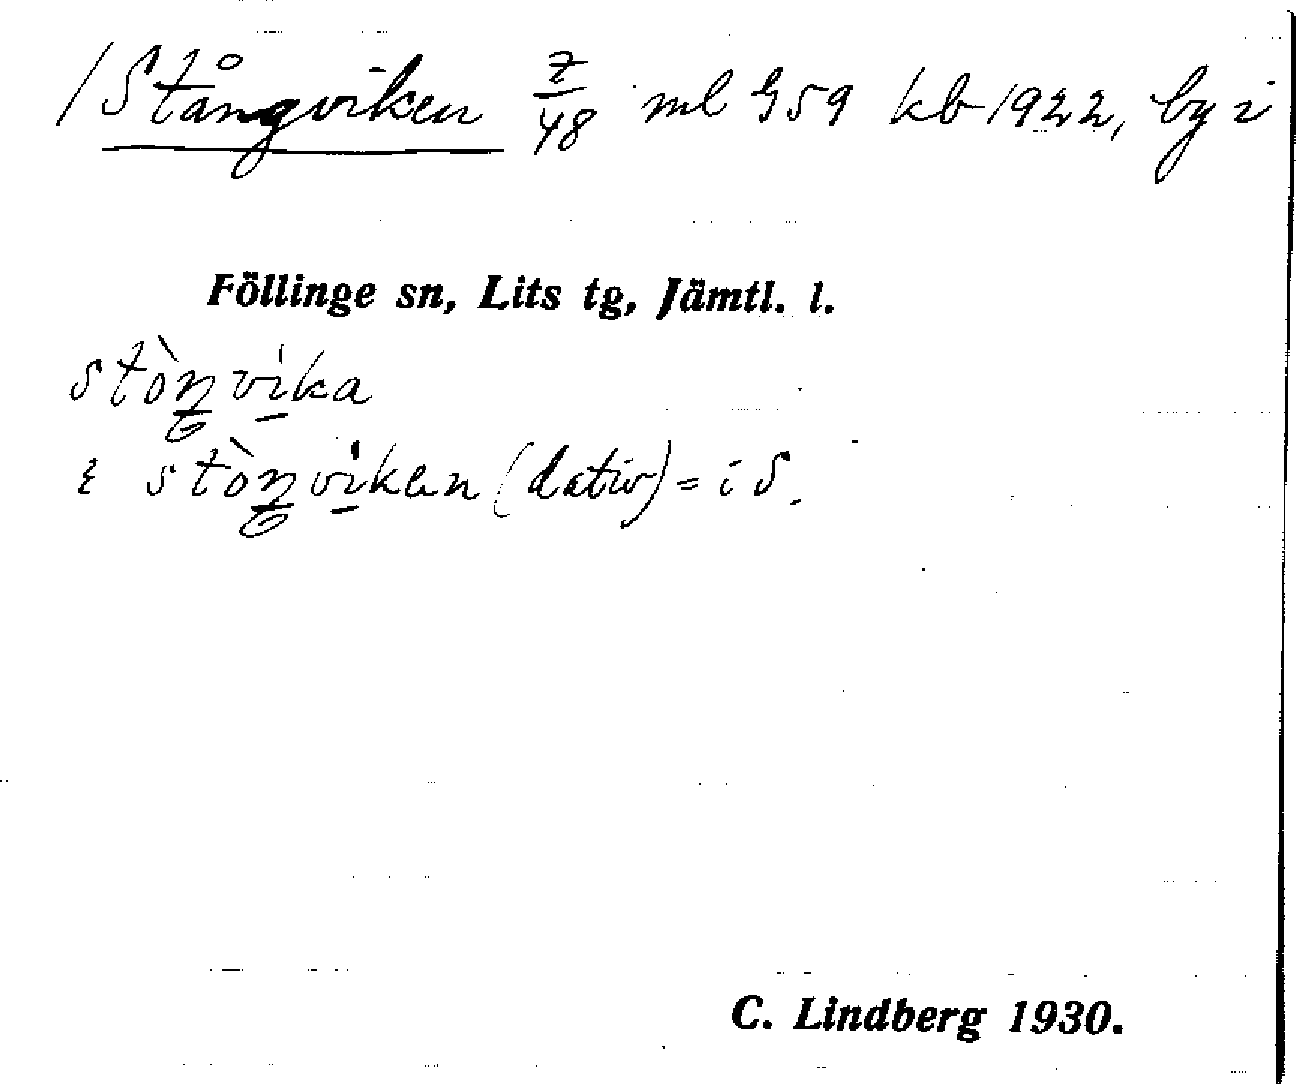 /Stångviken Z/48 ml G59 kb 1922, by i
Föllinge sn, Lits tg, Jämtl. l.
stòŋvi̱ka
ɛ stòŋvi̱kan (dativ) = i S.
C. Lindberg 1930.